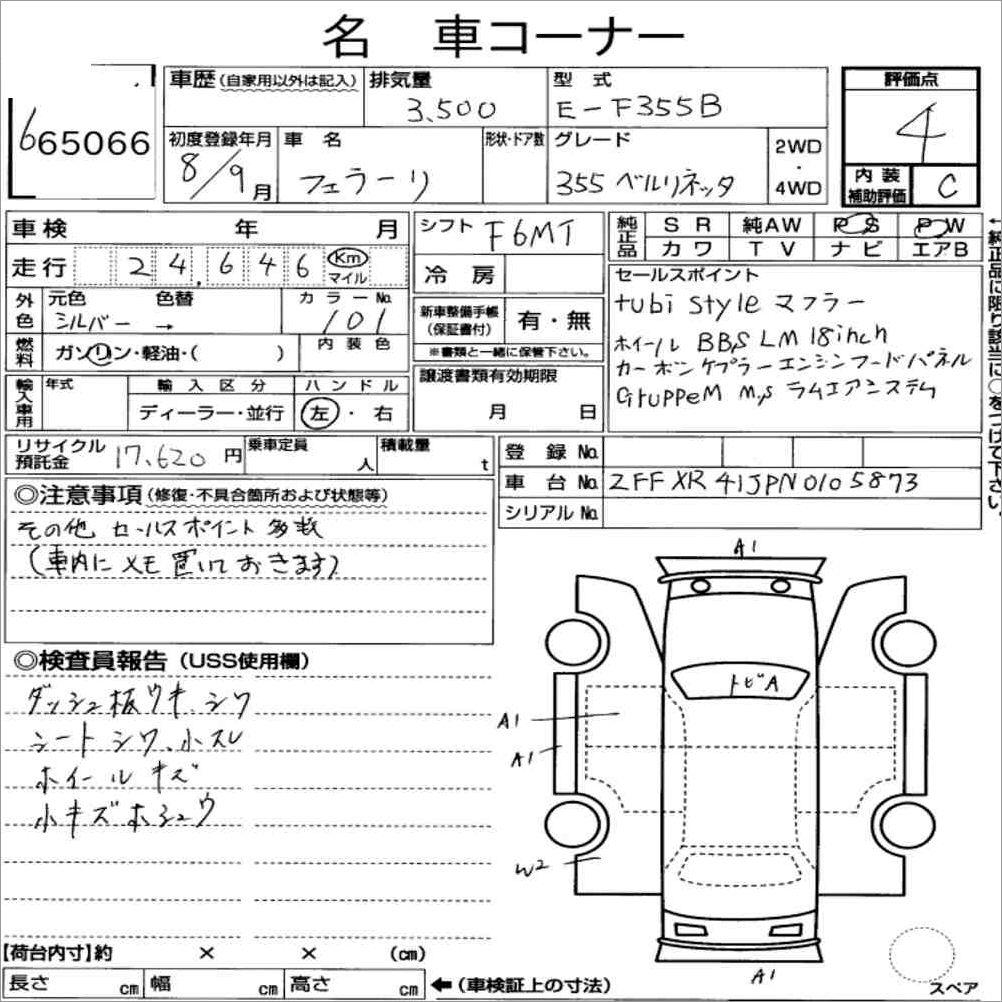 名 車コーナー
665066
車歴(自家用以外は記入) 排気量 3,500 型式 E-F355B
評価点 4
初度登録年月 8/9月 車名 フェラーリ 形状・ドア数 グレード 355 ベルリネッタ 2WD・4WD
内装補助評価 C
車検 年 月
シフト F6MT
純正品 SR 純AW PS PW
カワ TV ナビ エアB
走行 24,646 Km マイル
冷房
外色 元色 シルバー 色替 → カラーNo. 101
燃料 ガソリン・軽油・( ) 内装色
新車整備手帳(保証書付) 有・無
※書類と一緒に保管下さい。
セールスポイント
tubi style マフラー
ホイール BBS LM 18inch
カーボンケブラーエンジンフードパネル
GruppeM M,s ラムエアシステム
←純正品に限り該当に○をつけて下さい。
輸入車用 年式 輸入区分 ディーラー・並行 ハンドル 左・右
譲渡書類有効期限 月 日
リサイクル預託金 17,620円 乗車定員 人 積載量 t
登録No.
車台No. ZFFXR41JPN0105873
シリアルNo.
◎注意事項(修復・不具合箇所および状態等)
その他 セールスポイント多数
(車内にメモ置いておきます)
◎検査員報告(USS使用欄)
ダッシュ板ウキ、シワ
シートシワ、小スレ
ホイールキズ
小キズホシュウ
A1
トビA
A1
A1
W2
A1
スペア
【荷台内寸】約 × × (cm)
長さ cm 幅 cm 高さ cm ←(車検証上の寸法)